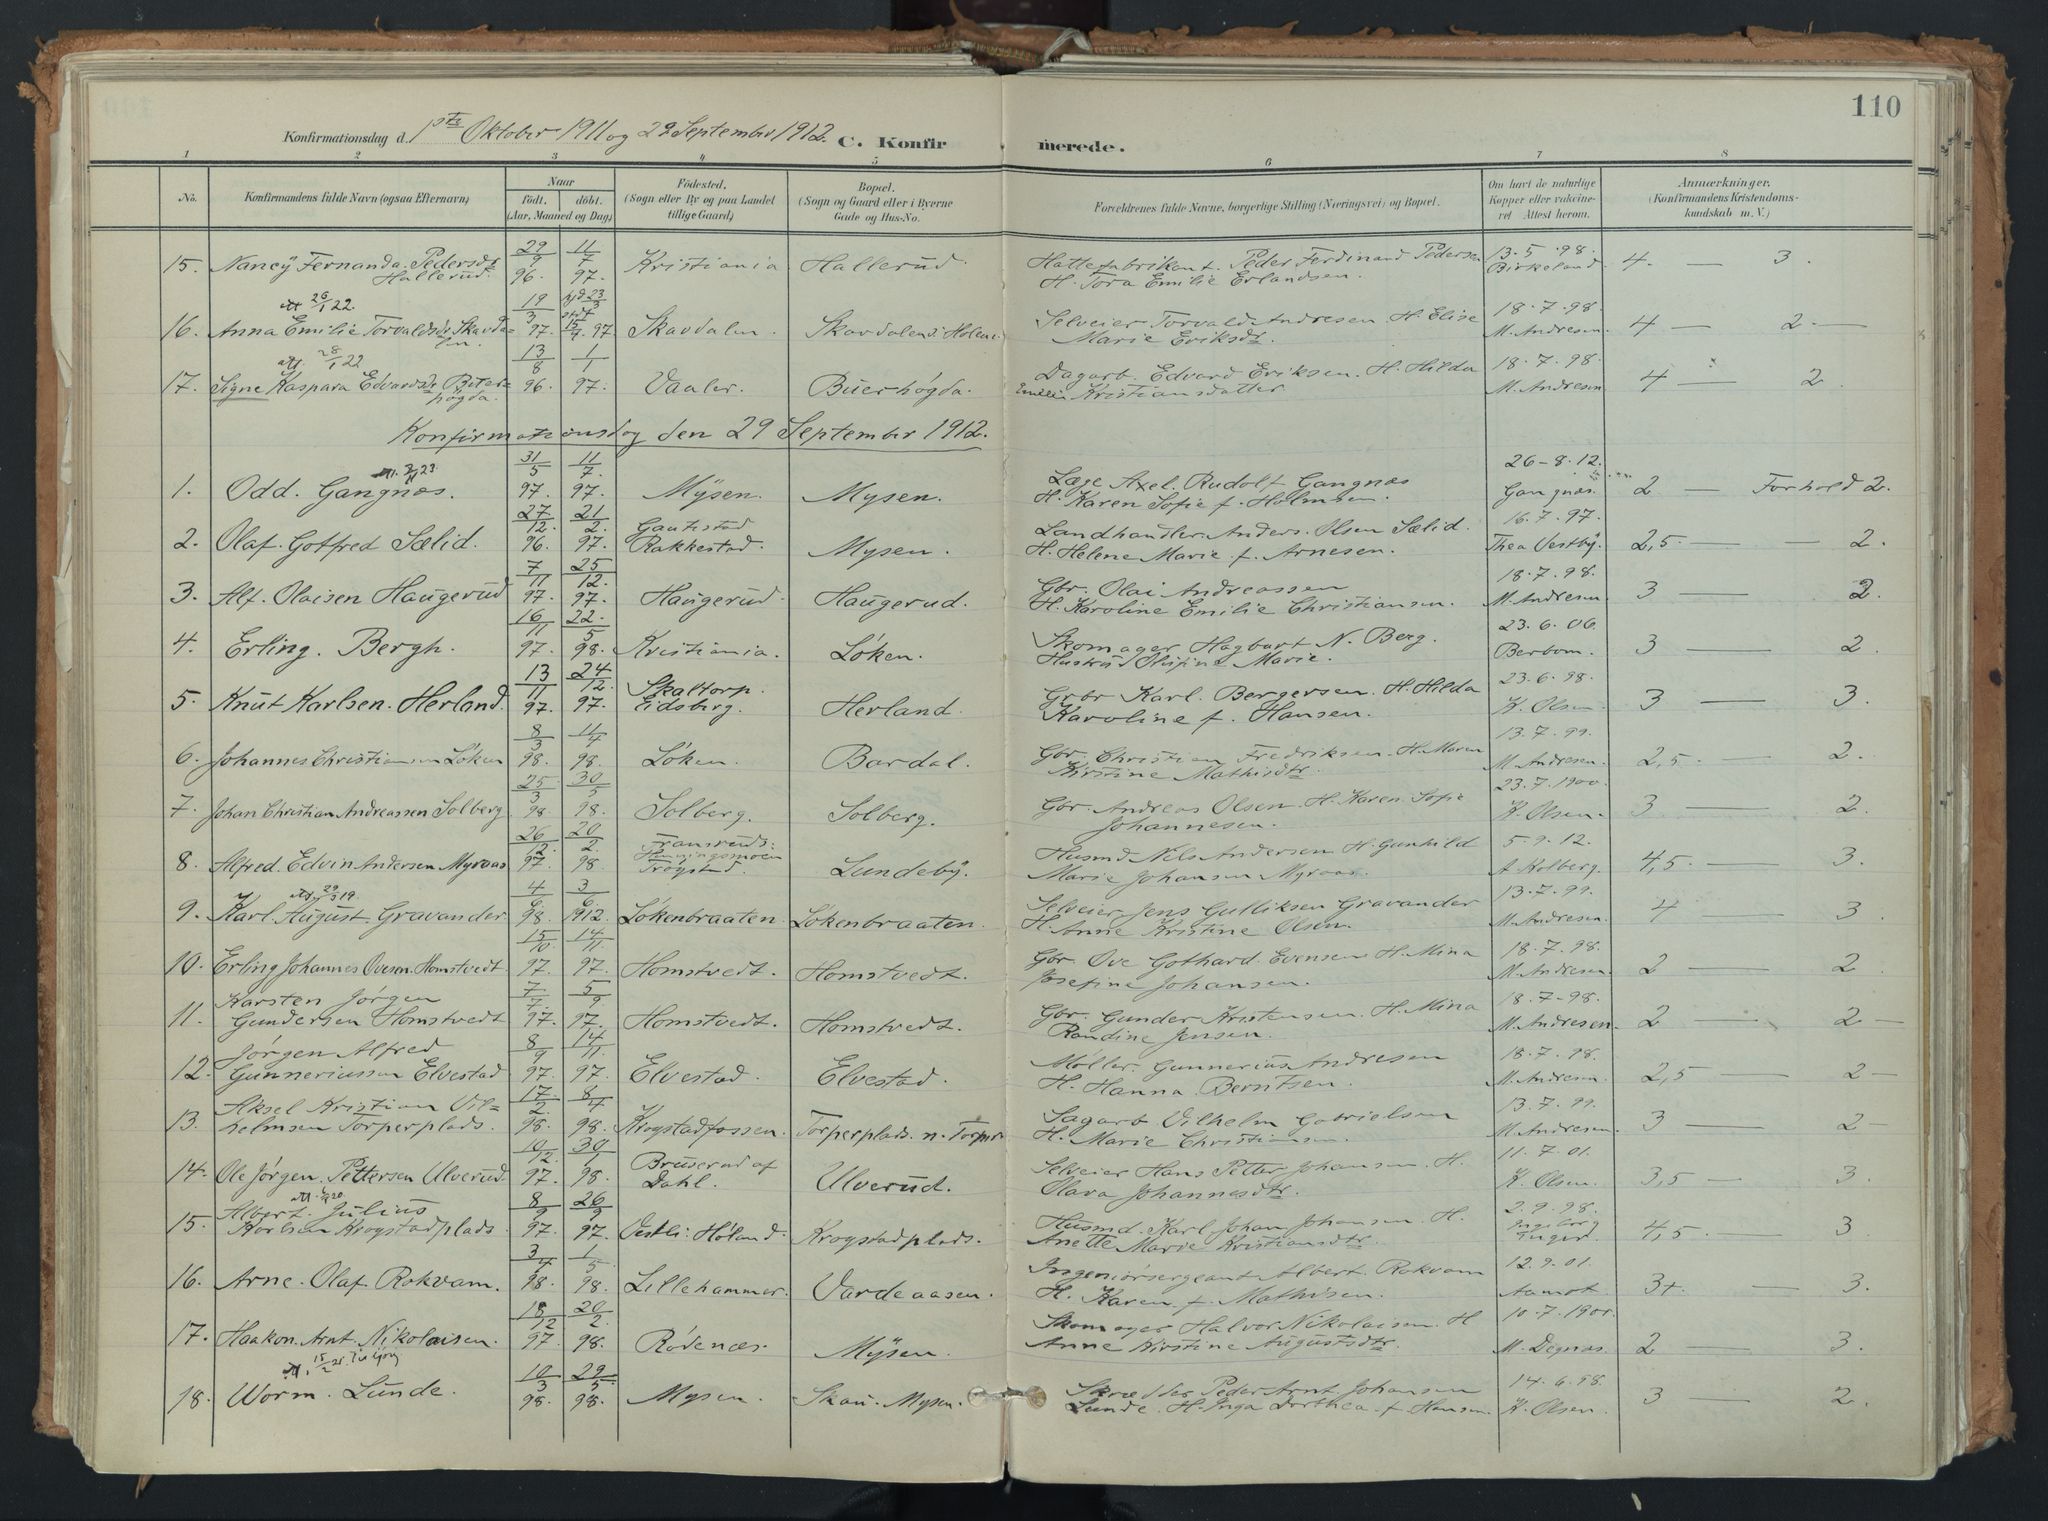 110
Konfirmationsdag d. 1ste Oktober 1911 og 29 September 1912. C. Konfirmerede.
1 2 3 4 5 6 7 8
No. Konfirmandens fulde Navn (ogsaa Efternavn) Naar Født. døbt. (Aar, Maaned og Dag) Fødested. (Sogn eller By og paa Landet tillige Gaard) Bopæl. (Sogn og Gaard eller i Byerne Gade og Hus-No. Forældrenes fulde Navne, borgerlige Stilling (Næringsvei) og Bopæl. Om havt de naturlige Kopper eller vaccineret Attest herom. Anmærkninger. (Konfirmandens Kristendomskundskab m. V.)
15. Nancy Fernanda Pedersdtr 29/9 11/7 Kristiania Hallerud Hattefabrikant Peder Ferdinand Pedersen 13.5.98. 4. — 3.
Hallerud. 96. 97. H. Tora Emilie Erlandsen. Birkeland
att 26/1 22. 19/3 23/3
16. Anna Emilie Torvaldsdtr Skavda= 97. 97 Skavdalen. Skavdalen i Holene. Selveier Torvald Andresen. H. Elise 18.7.98. 4 — 2 —
len. Marie Eriksdtr M. Andresen.
att. 28/1 22 13/8 1/1
17. Signe Kaspara Edvardsdtr 96. 97. Vaaler. Buerhøgda. Dagarb. Edvard Eriksen. H. Hilda 18.7.98. 4 — 2.
høgda. Emilie Kristiansdatter. M. Andresen
Konfirmationsdag den 29 September 1912.
att. 23. 31/5 11/7 26-8.12.
1. Odd. Gangnæs. 97. 97. Mysen. Mysen. Læge Axel Rudolf Gangnæs Gangnæs. 2 — Forhold 2.
H. Karen Sofie f. Holmsen.
27/12. 21/2. Gautestad 16.7.97.
2. Olaf Gotfred Sælid. 96. 97. Rakkestad. Mysen. Landhandler Anders Olsen Sælid. Thea Vestby. 2,5 — 2.
H. Helene Marie f. Arnesen.
7/11 25/12. 18.7.98.
3. Alf. Olaisen Haugerud 97. 97. Haugerud. Haugerud. Gbr. Olai Andreassen M. Andresen 3 — 2.
H. Karoline Emilie Christiansen.
16/11 22./5 23.6.06.
4. Erling. Bergh. 97. 98. Kristiania. Løken. Skomager Hagbart N. Berg. Berbom. 3 — 2.
Hustru Marie.
13/11 24/12. Skaltorp. 23.6.98.
5. Knut Karlsen. Herland. 97. 97. Eidsberg. Herland. Grbr Karl Bergersen. H. Hilda K. Olsen 3 — 3.
Karoline f. Hansen.
8/3 11/4 13.7.99.
6. Johannes Christiansen Løken 98. 98. Løken. Bardal. Gbr. Christian Fredriksen. H. Maren M. Andresen. 2,5. — 2.
Kirstine Mathisdtr.
25/3 30/5 23.7.1900
7. Johan Christian Andreassen Solberg 98. 98. Solberg. Solberg. Gbr. Andreas Olsen. H. Karen Sofie K. Olsen. 3 — 2.
Johannesen.
26/12. 20/2. Fransrud: 5.9.12.
8. Alfred Edvin Andersen Myraas 97. 98. Henningsmoen Lundeby. Husmd Nils Andersen H. Gunhild A Kolberg. 4,5 — 3.
Trøgstad. Marie Johansen Myraas.
att. 29/3 19. 4/6 3/6 13.7.99.
9. Karl August Gravander 98. 1912. Løkenbraaten. Løkenbraaten. Selveier Jens Gulliksen Gravander M. Andresen. 4 — 3.
H. Anne Kristine Olsen.
15/10. 14/11. 18.7.98.
10. Erling Johannes Ovesen Homstvedt. 97. 97. Homstvedt. Homstvedt. Gbr. Ove Gothard Evensen H. Mina M. Andresen. 2 — 2.
Josefine Johansen.
Karsten Jørgen 7/7. 5/9. 18.7-98.
11. Gundersen Homstvedt 97. 97. Homstvedt. Homstvedt. Gbr. Gunder Kristensen. H. Mina M. Andresen. 2 — 2 —
Randine Jensen.
Jørgen Alfred 8/9 14/11. 18.7.98.
12. Gunneriussen Elvestad 97. 97. Elvestad. Elvestad. Møller. Gunnerius Andresen M. Andresen. 2,5 — 2 —
H. Hanna Berntsen.
Aksel Kristian Vil= 17/2. 8/4 13.7.99.
13. helmsen Torperplads. 98. 98. Krogstadfossen. Torperplads. n. Torper. Sagarb Vilhelm Gabrielsen M. Andresen. 3 — 2 —
H. Marie Christiansen
10/12. 30/1 11.7.01.
14. Ole Jørgen Pettersen Ulverud. 97. 98. Bruserud af Ulverud. Selveier Hans Petter Johansen. H. K. Olsen. 3,5 — 3.
Dahl. Olava Johannesdtr.
att. 20. 8/9 26/9 2.9.98.
Albert Julius
15. Karlsen Krogstadplads. 97. 97. Vestli: Høland. Krogstadplads. Husmd. Karl Johan Johansen. H. Ingeborg 4,5. — 3
Anette Marie Kristiansdtr.
3/4 1/5 12.9.01.
16. Arne Olaf Rokvam. 98. 98. Lillehammer. Vardeaasen. Ingeniørsergeant Albert Rokvam Aamot. 3+. — 3.
H. Karen f. Mathisen.
18/12 20/2. 10.7.1900
17. Haakon Arnt Nikolaisen. 97. 98. Rødenæs. Mysen. Skomager Halvor Nikolaisen. H M. Degnæs. 2 — 3.
Anne Kirstine Augustsdtr.
att. 15/2 21. 10/3 29/5 14.6.98.
18. Worm. Lunde. 98. 98. Mysen. Skau. Mysen. Skrædder Peder Arnt Johansen K. Olsen. 3 — 2.
Lunde. H. Inga Dorthea f. Hansen.